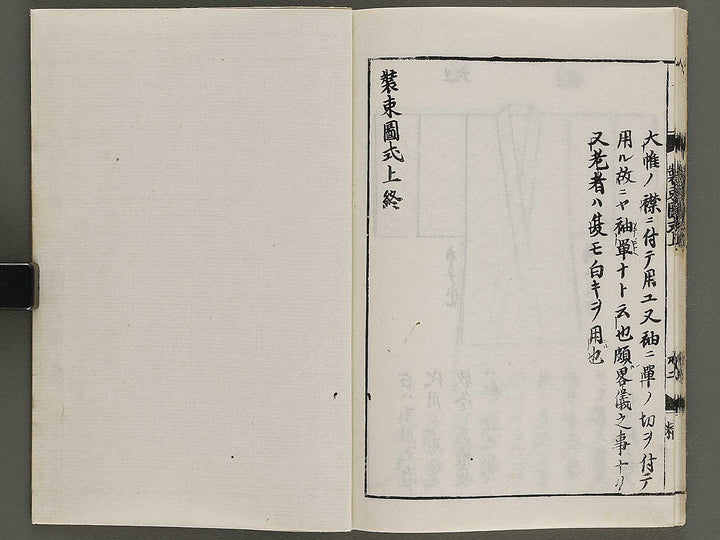 大帷ノ襟ニ付テ用ユ又袖ニ單ノ切ヲ付テ
用ル故ニヤ袖單ナト云也頗畧儀之事ナリ
又老者ハ夏モ白キヲ用也
裝束圖式上終
裝束圖式上